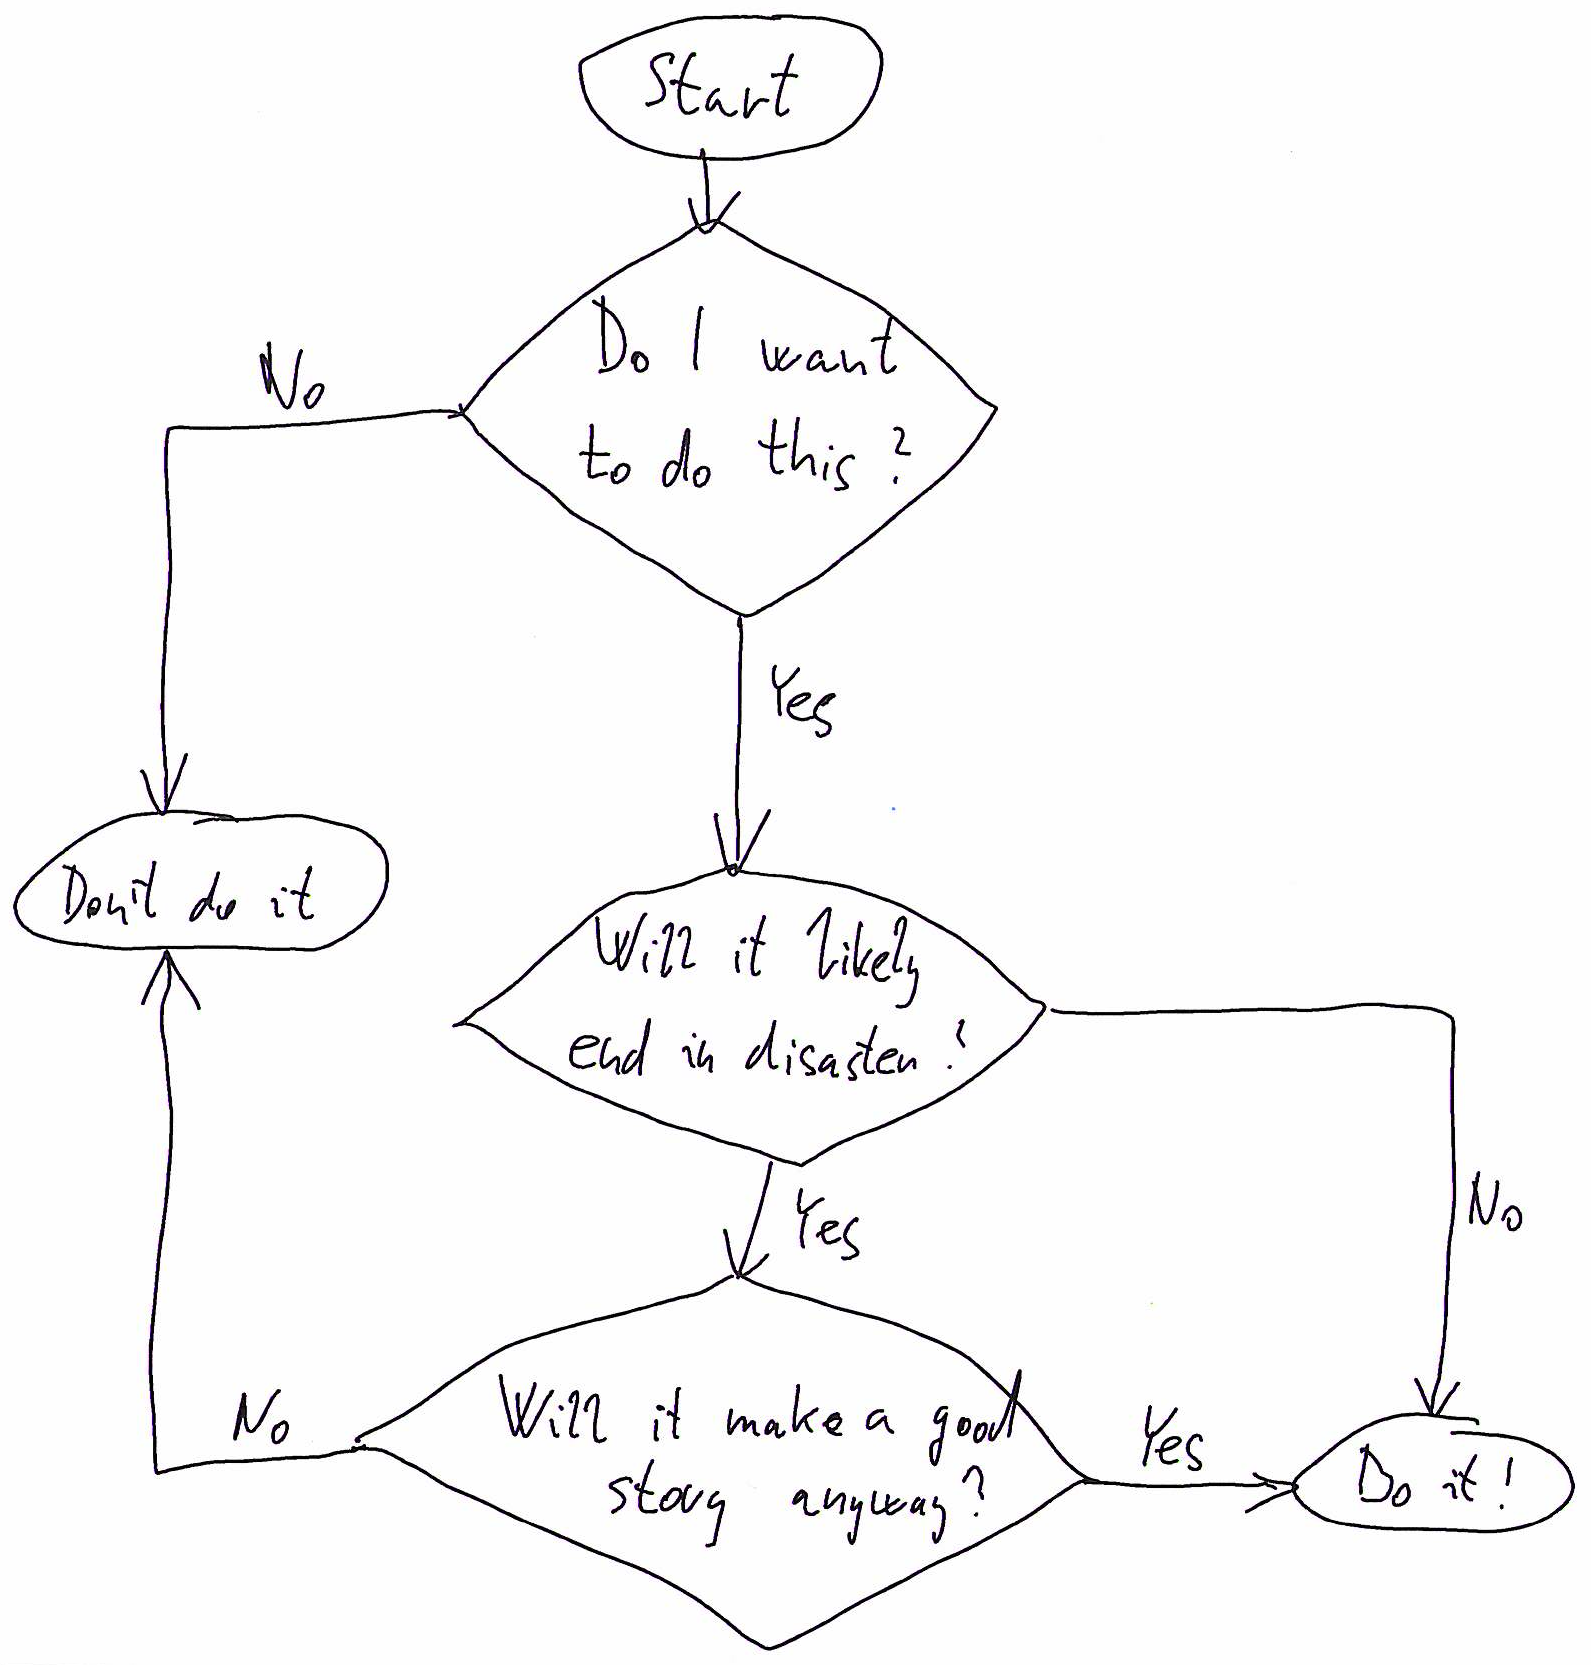 Start
Do I want
to do this?
No
Yes
Don't do it
Will it likely
end in disaster?
No
Yes
Will it make a good
story anyway?
No
Yes
Do it!